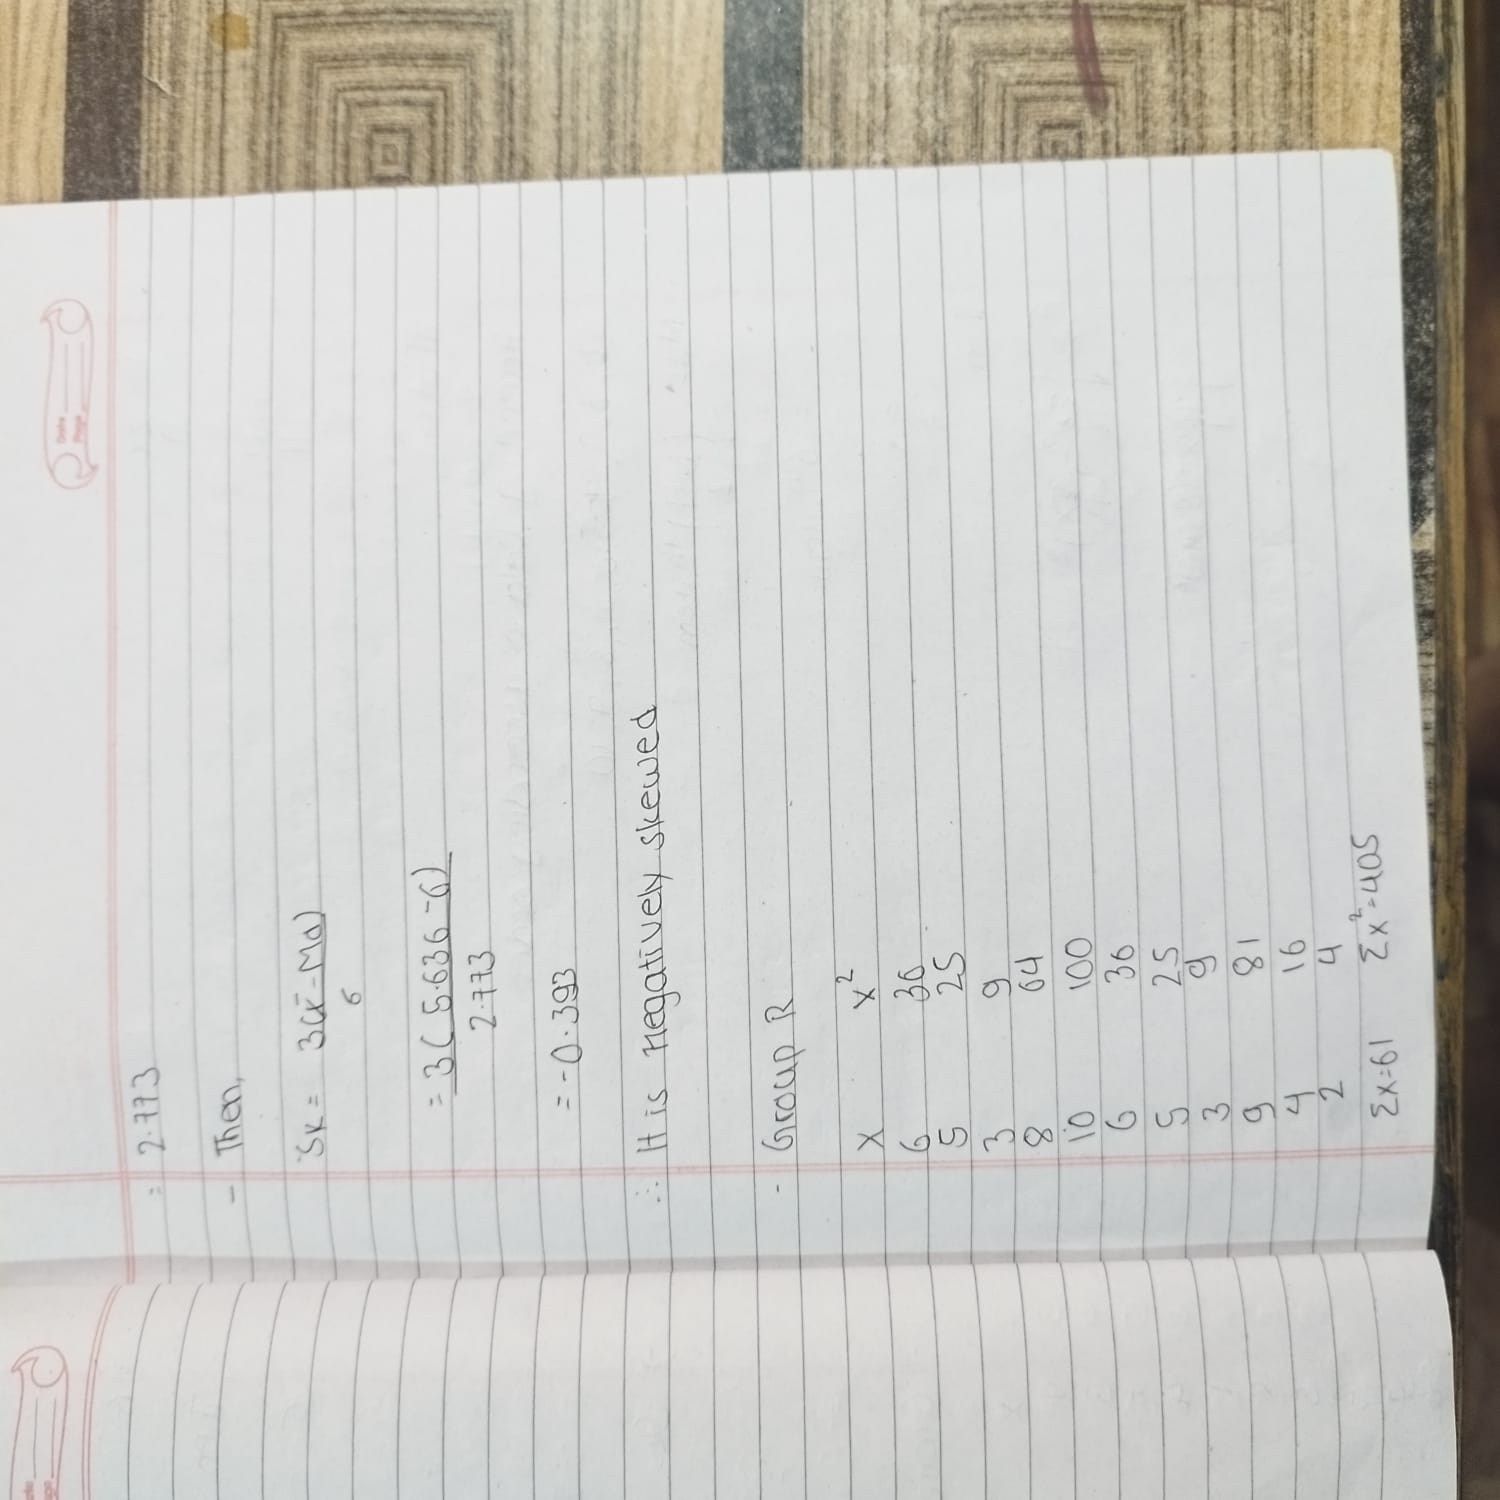 Date
Page
= 2.773
- Then,
Sk = 3(x̄ - Md)
6
= 3( 5.636 - 6)
2.773
= -0.393
∴ It is negatively skewed
- Group R
X X²
6 36
5 25
3 9
8 64
10 100
6 36
5 25
3 9
9 81
4 16
2 4
Σx=61 Σx²=405